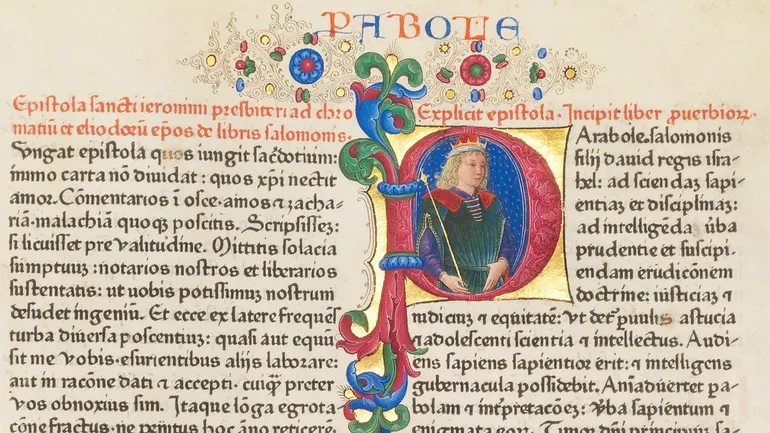 PABOLE
Epistola sancti ieronimi presbiteri ad chro
matiuʒ et eliodorū ep̄os de libris salomonis.
Vngat epistola quos iungit sac̄dotium:
immo carta nō diuidat : quos xp̄i nectit
amor. Cōmentarios ī osee. amos ⁊ zacha-
ria. malachiā quoqʒ poscitis. Scripsisseʒ:
si licuisset pre valitudine. Mittitis solacia
sumptuuʒ : notarios nostros et librarios
sustentatis: ut uobis potissimuʒ nostrum
desudet ingeniū. Et ecce ex latere frequēs
turba diuersa poscentiuʒ: quasi aut equū
sit me vobis. esurientibus alijs laborare:
aut in racōne dati ⁊ accepti. cuiqʒ preter
vos obnoxius sim. Itaque lōga egrota
cōne fractus. ne penitus hoc āno reticerē.
Explicit epistola. Incipit liber ꝓuerbioꝝ.
Arabole. salomonis
filij dauid regis isra-
hel: ad sciendaʒ sapi-
entiaʒ et disciplinaʒ:
ad intelligēda ūba
prudentie et suscipi-
endam erudicōnem
doctrine: iusticiaʒ ⁊
iudiciuʒ ⁊ equitatē: Vt det᷑ ꝑuulis astucia
⁊ adolescenti scientia ⁊ intellectus. Audi-
ens sapiens sapientior erit: ⁊ intelligens
gubernacula possidebit. Aīaduertet pa-
bolam ⁊ int̄pretacōeʒ: v̄ba sapientum ⁊
enigmata eoꝝ. Timor dn̄i principiuʒ sa-